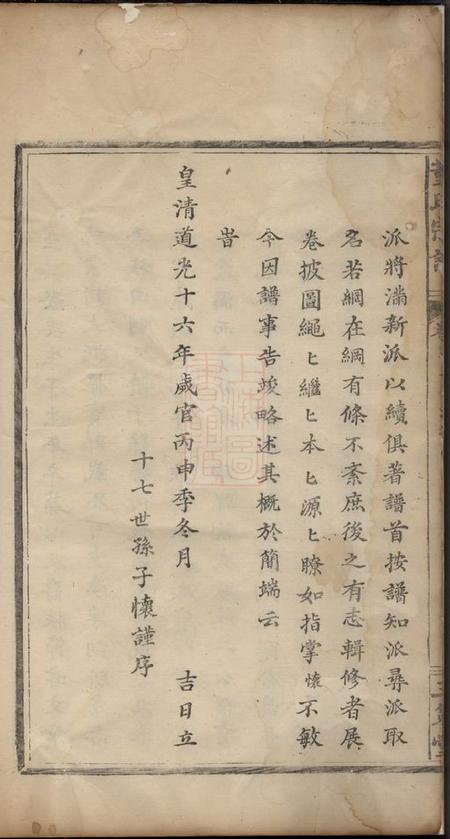 派將滿新派以續俱著譜首按譜知派尋派取
名若綱在綱有條不紊庶後之有志輯修者展
卷披圖繩匕繼匕本匕源匕瞭如指掌懷不敏
今因譜事告竣略述其概於簡端云
旹
皇清道光十六年歲官丙申季冬月 吉日立
十七世孫子懷謹序
上海圖書館藏